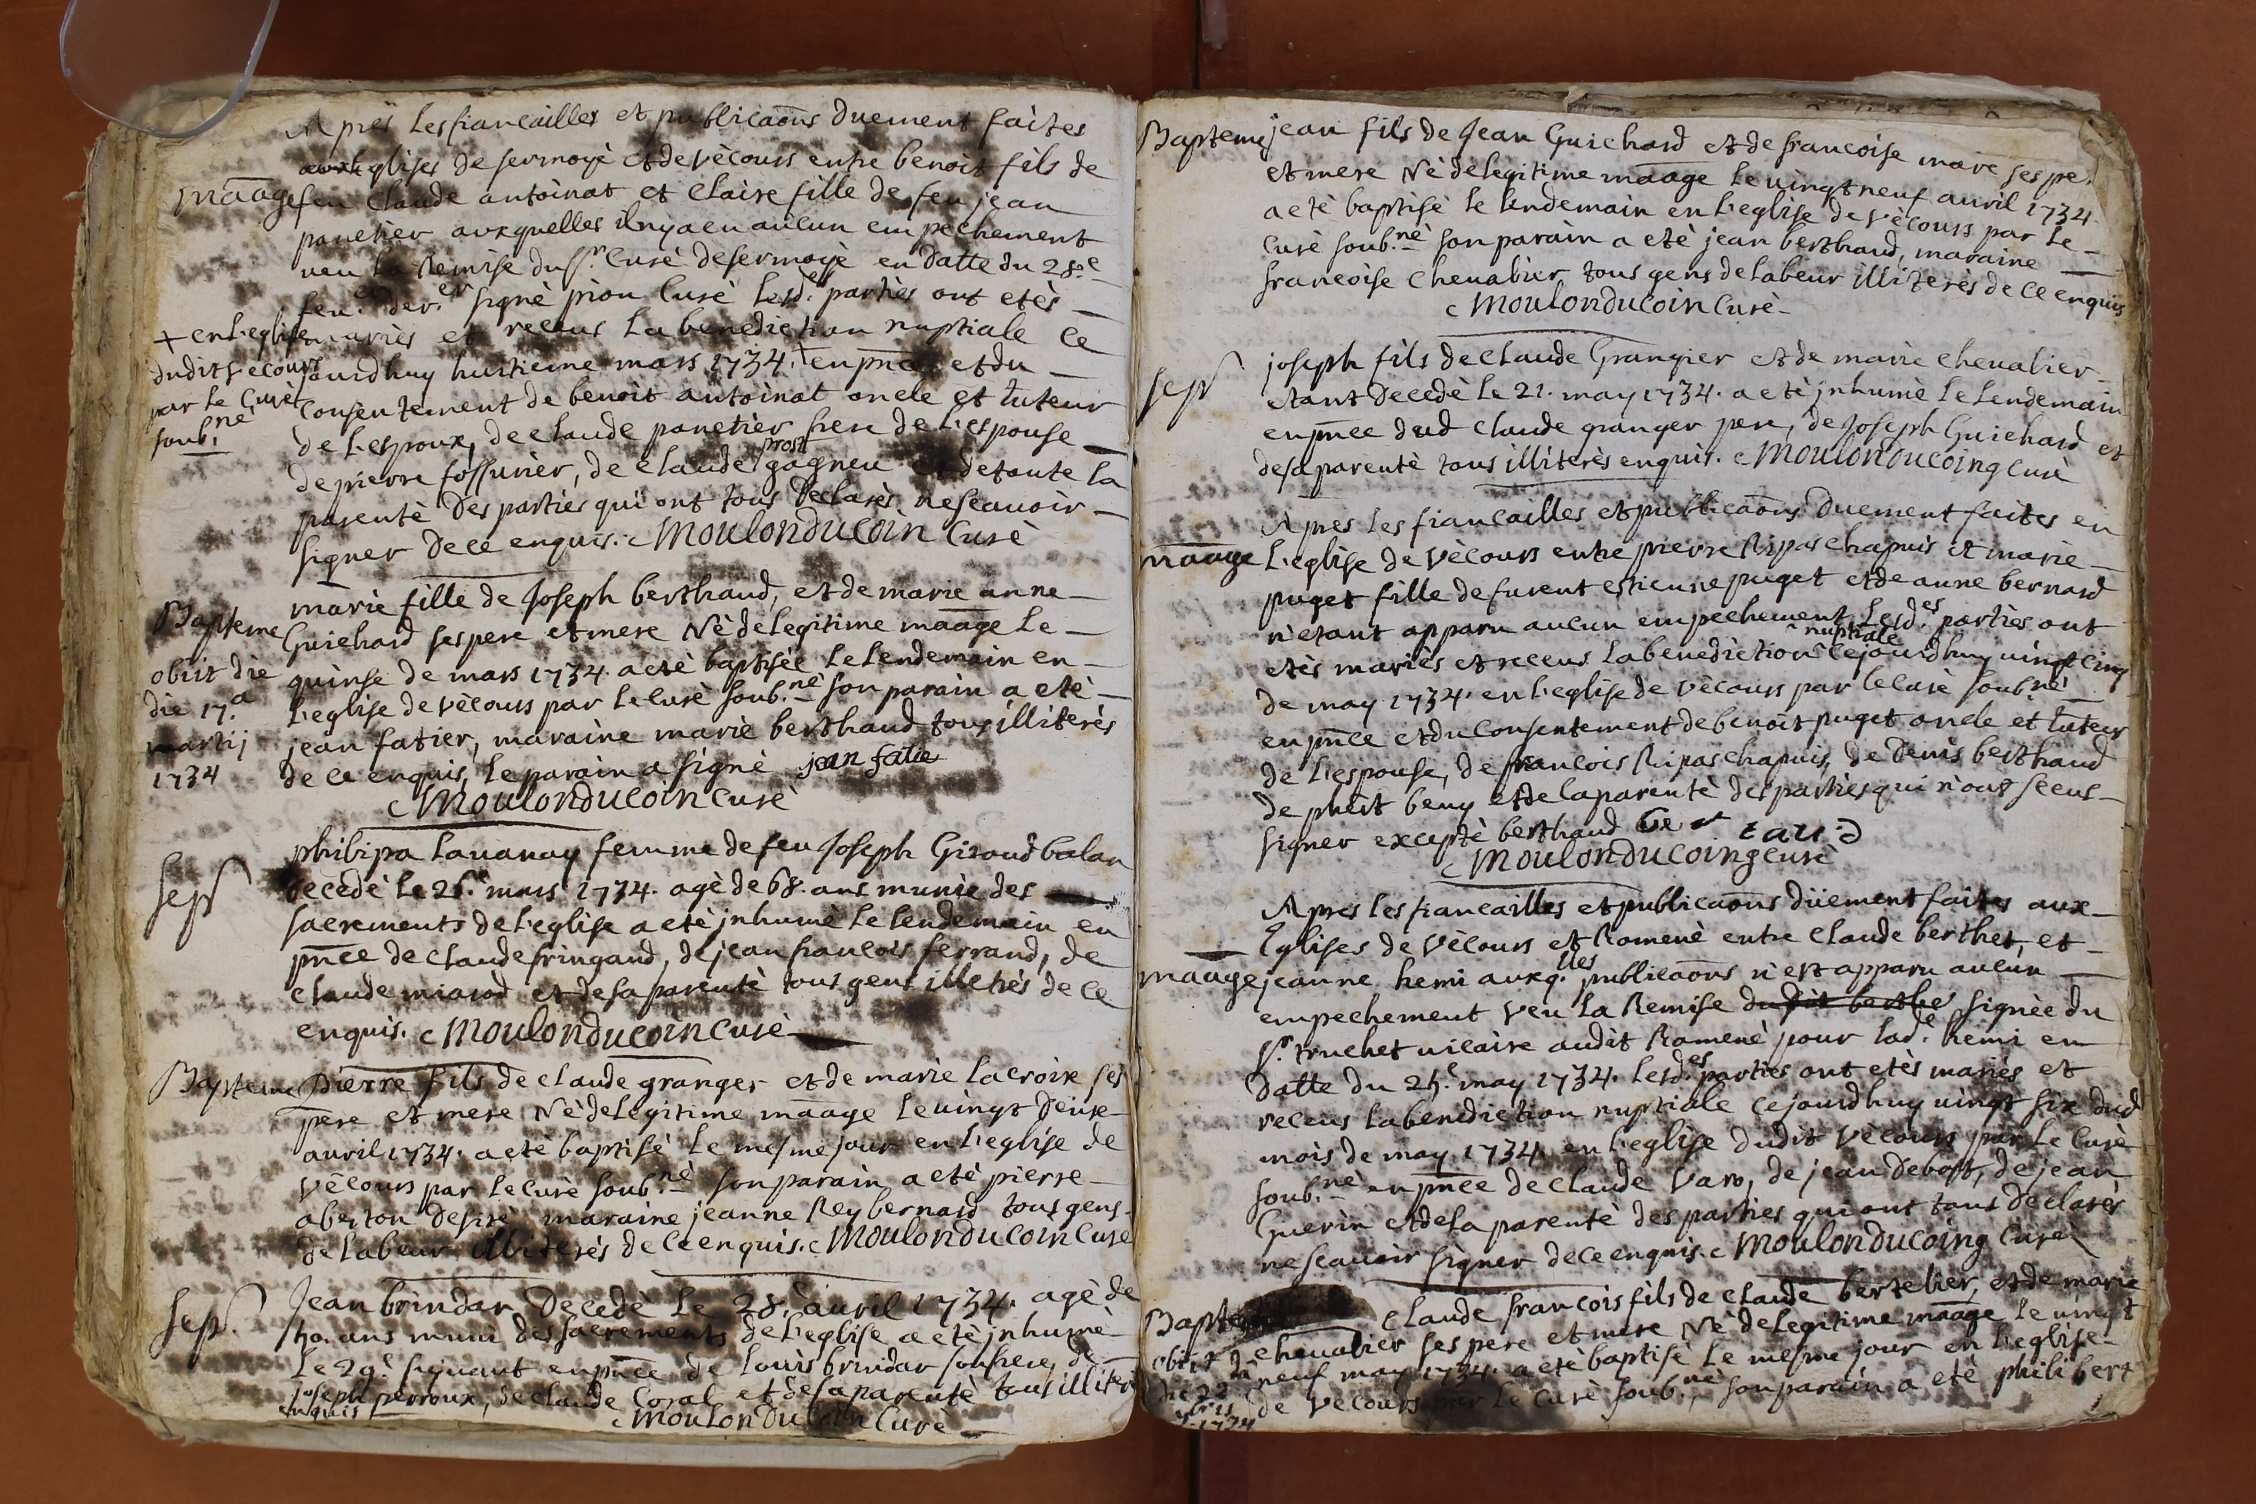 Apres les fiancailles et publicaõns duement faites
aux eglises de sermoyè et de vècours entre benoit fils de
māage feu Claude antoinat et Claire fille de feu jean
panetier auxquelles il ny a eu aucun empechement
veu la Remise du sr. Curè de sermoyè en datte du 28.e
feu. der.er signè pion Curè lesd. parties ont etès
mariès et receus la benediction nuptiale Ce
jourdhuy huitieme mars 1734. + en pñce et du
Consentement de benoit antoinat oncle et tuteur
de l'espoux, de Claude panetier frere de l'espouse
de pierre fossurier, de Claude prost gagneu et de toute la
parentè des parties qui ont tous declarès ne scauoir
signer de ce enquis. Moulonducoin Curè
+ en l'eglise
dudit vecours
par le Curè
soub.nè
marie fille de Joseph berthaud, et de marie anne
Bapteme Guichard ses pere et mere Nè de legitime māage le
quinse de mars 1734. a etè baptisèe le lendemain en
l'eglise de vècours par le Curè soub.nè son parain a etè
jean fatier, maraine marie berthaud tous illiterès
de ce enquis, le parain a signè jean fatie
Moulonducoin Curè
obiit die
die 17.a
martij
1734
philipa lauanay femme de feu Joseph Giroud balan
sepr decedè le 26.e mars 1734. agè de 68. ans munie des
sacrements de l'eglise a etè jnhumè le lendemain en
pñce de Claude fringand, de jean francois ferrand, de
Claude miarod et de sa parentè tous gens illetrès de ce
enquis. Moulonducoin Curè
Bapteme pierre fils de Claude granger et de marie lacroix ses
pere et mere Nè de legitime māage le vingt deuxe
avril 1734. a etè baptisè le mesme jour en l'eglise de
vècours par le Curè soub.nè son parain a etè pierre
maraine jeanne Rey bernard tous gens
de labeur illiterès de ce enquis. Moulonducoin Curè
sepr. Jean brindar decedè le 28.e avril 1734. agè de
ans muni des sacrements de l'eglise a etè jnhumè
le 29.e suiuant en pñce de louis brindar son frere, de
joseph perroux, de Claude Coral et de sa parentè tous illiter
enquis Moulonducoin Curè
Bapteme jean fils de Jean Guichard et de francoise mare ses pe.
et mere Nè de legitime māage le vingt neuf avril 1734.
a etè baptisè le lendemain en l'eglise de vècours par le
Curè soub.nè son parain a etè jean berthaud, maraine
francoise Cheualier tous gens de labeur illiterès de ce enquis
Moulonducoin Curè
joseph fils de Claude Grangier et de marie Cheualier
sepr etant decedè le 21. may 1734. a etè jnhumè le lendemain
en pñce dud Claude granger pere, de Joseph Guichard et
de sa parentè tous illiterès enquis. Moulonducoing Curè
Apres les fiancailles et publicaõns duement faites en
māage l'eglise de vècours entre pierre Ripas Chapuis et marie
puget fille de furent estienne puget et de anne bernard
n'etant apparu aucun empechement, lesd.es parties ont
etès mariès et receus la benediction nuptiale Cejourdhuy vingt cinq
de may 1734. en l'eglise de vècours par le Curè soub.nè
en pñce et du Consentement de benoit puget oncle et tuteur
de l'espouse, de francois Ripas Chapuis, de denis berthaud
de phbt beny et de la parentè des parties qui n'ont sceus
signer exceptè berthaud
Moulonducoing Curè
Apres les fiancailles et publicaõns düement faites aux
Eglises de vècours et Romenè entre Claude berthet, et
māage jeanne hemi auxq.lles publicaõns n'est apparu aucun
empechement veu la Remise dudit berthe signèe du
sr. truchet vicaire audit Romenè pour lad.e hemi en
datte du 25.e may 1734. lesd.es parties ont etès mariès et
receus la benediction nuptiale Cejourdhuy vingt six dud
mois de may 1734. en l'eglise dudit vècours par le Curè
soub.nè en pñce de Claude varo, de jean debost, de jean
Guerin et de la parentè des parties qui ont tous declarès
ne scauoir signer de ce enquis. Moulonducoing Curè
Bapteme Claude francois fils de Claude bertelier, et de marie
cheualier ses pere et mere Nè de legitime māage le vingt
neuf may 1734. a etè baptisè le mesme jour en l'eglise
de vècours par le Curè soub.nè son parain a etè philibert
obiit
die 22
1734